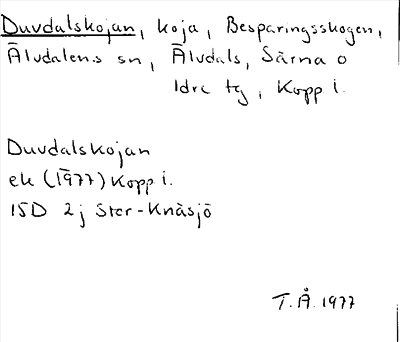 Duvdalskojan, koja, Besparingsskogen,
Älvdalens sn, Älvdals, Särna o
Idre tg, Kopp i.
Duvdalskojan
ek (1977) Kopp i.
15D 2j Stor-Knäsjö
T.Å. 1977